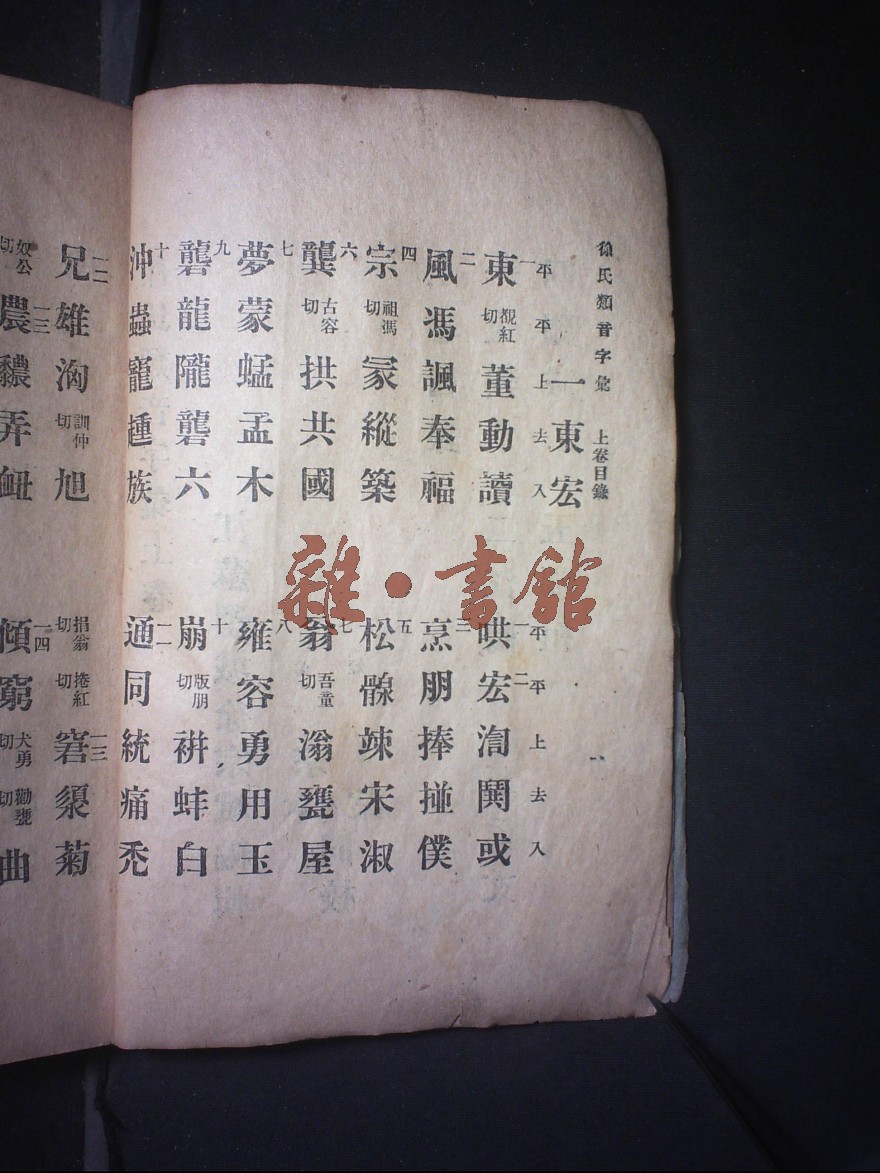 徐氏類音字彙 上卷目錄 一
一東宏
平 平 上 去 入
平 平 上 去 入
一 東 覩紅切 董 動 讀
一 哄 二 宏 澒 鬨 或
二 風 馮 諷 奉 福
三 烹 朋 捧 掽 僕
四 宗 祖馮切 冢 縱 築
五 松 竦 宋 淑
六 龔 古容切 拱 共 國
七 翁 吾童切 滃 甕 屋
七 夢 蒙 蜢 孟 木
八 雍 容 勇 用 玉
九 礱 龍 隴 礱 六
十 崩 版朋切 蚌 白
十 沖 蟲 寵 族
一二 通 同 統 痛 禿
一二 兄 雄 洶 訓仲切 旭
捐翁切 捲紅切 菊
奴公切 一三 農 弄
一四 傾 窮 犬勇切 勸甕切 曲
雜·書館